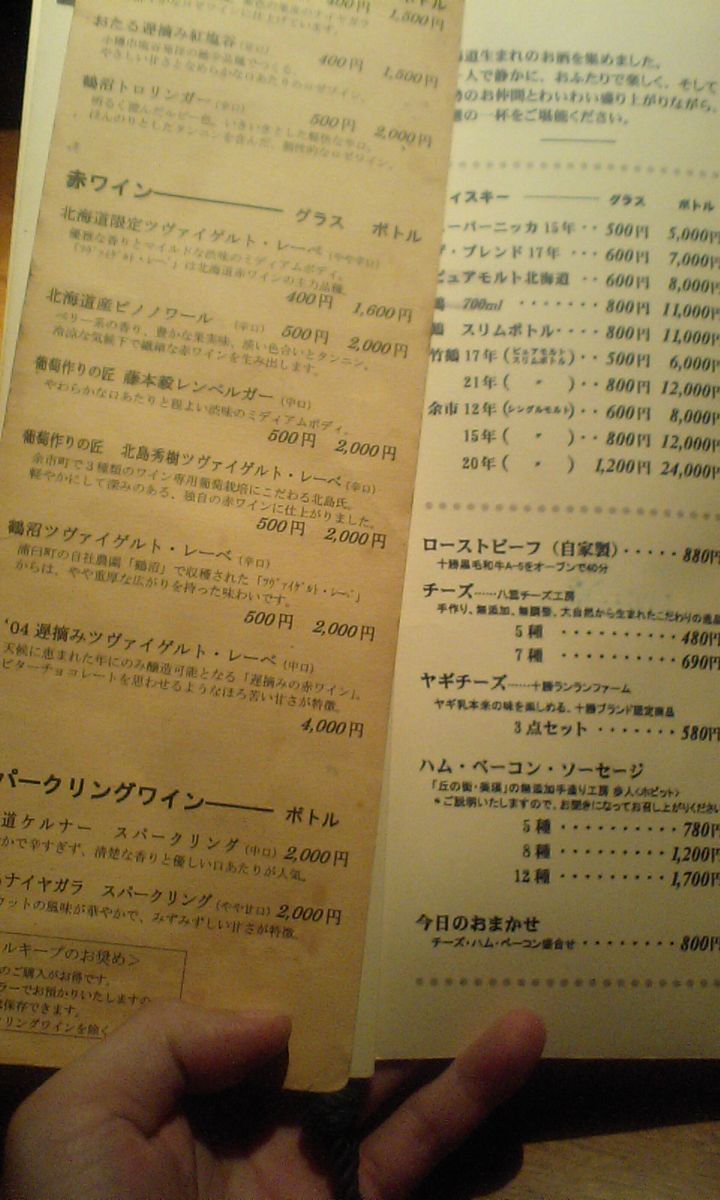 ボトル
400円 1,500円
仕上げています。
おたる遅摘み紅塩谷(辛口)
400円 1,500円
やさしい甘さとなめらかな口あたりのロゼワイン。
鶴沼トロリンガー(辛口)
500円 2,000円
明るく澄んだルビー色。いきいきとした軽快な辛口。
ほんのりとしたタンニンを含んだ、個性的なロゼワイン。
赤ワイン グラス ボトル
北海道限定ツヴァイゲルト・レーベ(やや辛口)
優雅な香りとマイルドな渋味のミディアムボディ。
「ﾂｳﾞｧｲｹﾞﾙﾄ・ﾚｰﾍﾞ」は北海道赤ワインの主力品種。
400円 1,600円
北海道産ピノノワール (辛口) 500円 2,000円
ベリー系の香り、豊かな果実味、淡い色合いとタンニン。
冷涼な気候下で繊細な赤ワインを生み出します。
葡萄作りの匠 藤本毅レンベルガー(中口)
やわらかな口あたりと程よい渋味のミディアムボディ。
500円 2,000円
葡萄作りの匠 北島秀樹ツヴァイゲルト・レーベ(辛口)
余市町で3種類のワイン専用葡萄栽培にこだわる北島氏。
軽やかにして深みのある、独自の赤ワインに仕上がりました。
500円 2,000円
鶴沼ツヴァイゲルト・レーベ(辛口)
浦臼町の自社農園「鶴沼」で収穫された「ﾂｳﾞｧｲｹﾞﾙﾄ・ﾚｰﾍﾞ」
からは、やや重厚な広がりを持った味わいです。
500円 2,000円
'04遅摘みツヴァイゲルト・レーベ(中口)
天候に恵まれた年にのみ醸造可能となる「遅摘みの赤ワイン」。
ビターチョコレートを思わせるようなほろ苦い甘さが特徴。
4,000円
パークリングワイン ボトル
道ケルナー スパークリング(中口) 2,000円
かで辛すぎず、清楚な香りと優しい口あたりが人気。
ナイヤガラ スパークリング(やや甘口) 2,000円
カットの風味が華やかで、みずみずしい甘さが特徴。
ルキープのお奨め>
のご購入がお得です。
ラーでお預かりいたしますの
保存できます。
クリングワインを除く
道生まれのお酒を集めました。
一人で静かに、おふたりで楽しく、そして
のお仲間とわいわい盛り上がりながら、
の一杯をご堪能ください。
ィスキー グラス ボトル
ーパーニッカ 15年・・500円 5,000円
・ブレンド 17年・・・600円 7,000円
ピュアモルト北海道・・600円 8,000円
鶴 700ml・・・・・・・800円 11,000円
鶴 スリムボトル・・・・800円 11,000円
竹鶴 17年(ピュアモルト スリムボトル)・・500円 6,000円
21年( 〃 )・・800円 12,000円
余市 12年(シングルモルト)・・600円 8,000円
15年( 〃 )・・800円 12,000円
20年( 〃 ) 1,200円 24,000円
ローストビーフ(自家製)・・・・・880円
十勝黒毛和牛A-5をオーブンで40分
チーズ……八雲チーズ工房
手作り、無添加、無調整、大自然から生まれたこだわりの逸品
5種・・・・・・・・・・480円
7種・・・・・・・・・・690円
ヤギチーズ……十勝ランランファーム
ヤギ乳本来の味を楽しめる、十勝ブランド認定商品
3点セット・・・・・・・580円
ハム・ベーコン・ソーセージ
「丘の街・美瑛」の無添加手造り工房 歩人<ホビット>
*ご説明いたしますので、お聞きになってお召し上がりください
5種・・・・・・・・・・780円
8種・・・・・・・・・・1,200円
12種・・・・・・・・・1,700円
今日のおまかせ
チーズ・ハム・ベーコン盛合せ・・・・・・・・800円